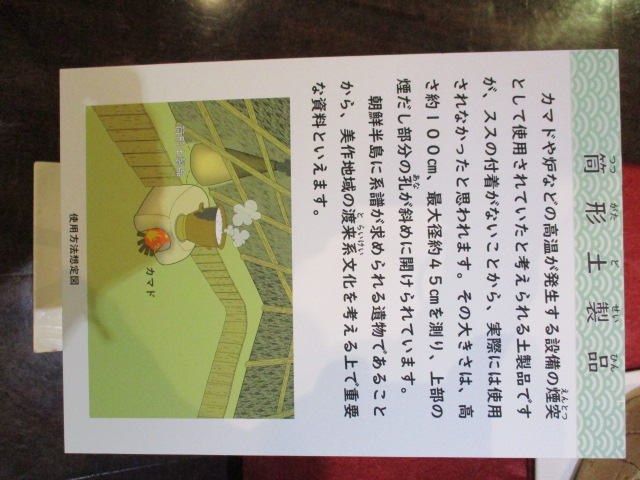 筒形土製品
つつがたどせいひん
カマドや炉などの高温が発生する設備の煙突
えんとつ
として使用されていたと考えられる土製品です
が、ススの付着がないことから、実際には使用
されなかったと思われます。その大きさは、高
さ約100cm、最大径約45cmを測り、上部の
煙だし部分の孔が斜めに開けられています。
あな
朝鮮半島に系譜が求められる遺物であること
から、美作地域の渡来系文化を考える上で重要
とらいけい
な資料といえます。
カマド
使用方法想定図